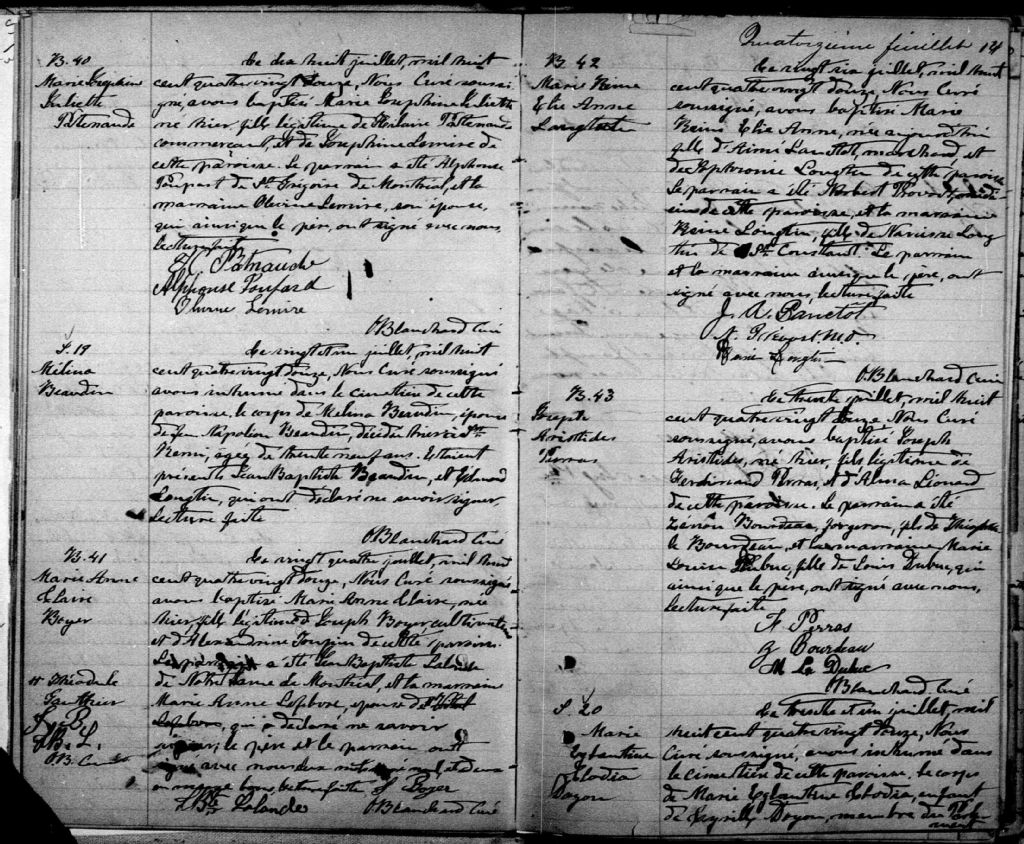 B. 40
Marie Josephine
Juliette
Patenaude
Le dix huit juillet, mil huit
cent quatre vingt douze, Nous Curé soussi
gné, avons baptisé Marie Josephine Juliette
née hier, fille légitime de Hilaire Patenaude
commercant, et de Josephine Lemire de
cette paroisse. Le parrain a été Alphonse
de St Grégoire de Montréal, et la
marraine Olivine Lemire, son épouse,
qui ainsi que le père, ont signé avec nous,
lecture faite
Patnaude
Alphonse
Lemire
O Blanchard Curé
S. 19
Mélina
Beaudin
Le vingt et un juillet, mil huit
cent quatre vingt douze, Nous Curé soussigné
avons inhumé dans le cimetière de cette
paroisse le corps de Melina Beaudin, épouse
de feu Napoléon Beaudin, décédée
Remi, agée de trente neuf ans. Etaient
présents Jean Baptiste Beaudin, et Edmond
Longtin, qui ont déclaré ne savoir signer,
lecture faite
O Blanchard Curé
B. 41
Marie Anne
Claire
Boyer
Le vingt quatre juillet, mil huit
cent quatre vingt douze, Nous Curé soussigné
avons baptisé Marie Anne Claire, née
hier, fille légitime de Joseph Boyer cultivateur
et d'Alexandrine de cette paroisse.
Le parrain a été Jean Baptiste Lalande
de Notre Dame de Montréal, et la marraine
Marie Anne Lefebvre, epouse de
Lefebvre, qui a déclaré ne savoir
signer, le père et le parrain ont
signé avec nous
lecture faite J Boyer
J. Bte Lalande
O Blanchard Curé
Théodule
Gauthier
J. B.
J. B. L.
O. B. Curé
Quatorzième feuillet 14
B. 42
Marie Reine
Elie Anne
Le vingt six juillet, mil huit
cent quatre vingt douze, Nous Curé
soussigné, avons baptisé Marie
Reine Elie Anne, née aujourd'hui
fille d'Aimé Lanctot, marchand, et
de Sophronie Longtin de cette paroisse
Le parrain a été Norbert Provost,
de cette paroisse, et la marraine
Reine Longtin, fille de Narcisse Long
tin de St. Constant. Le parrain
et la marraine ainsi que le père, ont
signé avec nous, lecture faite
J. A. Lanctôt
N. Provost, M.D.
Reine Longtin
O. Blanchard Curé
B. 43
Joseph
Aristides
Perras
Le trente juillet, mil huit
cent quatre vingt douze Nous Curé
soussigné, avons baptisé Joseph
Aristides, né hier, fils légitime de
Ferdinand Perras, et d'Alma Lionard
de cette paroisse. Le parrain a été
Zénon Bourdeau, forgeron, fils de Théophi
le Bourdeau, et la marraine Marie
Louise Dubuc, fille de Louis Dubuc, qui
ainsi que le père, ont signé avec nous,
lecture faite
F Perras
Z Bourdeau
M La Dubuc
O Blanchard Curé
S. 20
Marie
Eglantine
Elodia
Doyon
Le trente et un juillet, mil
huit cent quatre vingt douze, Nous
Curé soussigné, avons inhumé dans
le cimetière de cette paroisse, le corps
de Marie Eglantine Elodia, enfant
de Cyrille Doyon, membre du Parle
ment